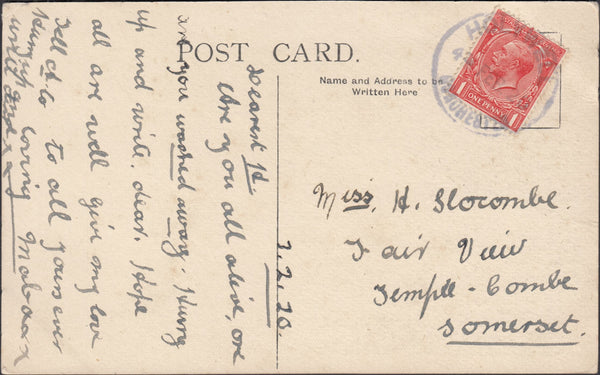 POST CARD.
Name and Address to be
Written Here
ONE PENNY
1 1
3.2.20.
Dearest H.
Are you all alive, or
are you washed away. Hurry
up and write, dear. Hope
all are well give my love
to all yours ever
loving
Tell
Hurry up
Miss. H. Slocombe.
Fair View
Temple-Combe
Somerset.